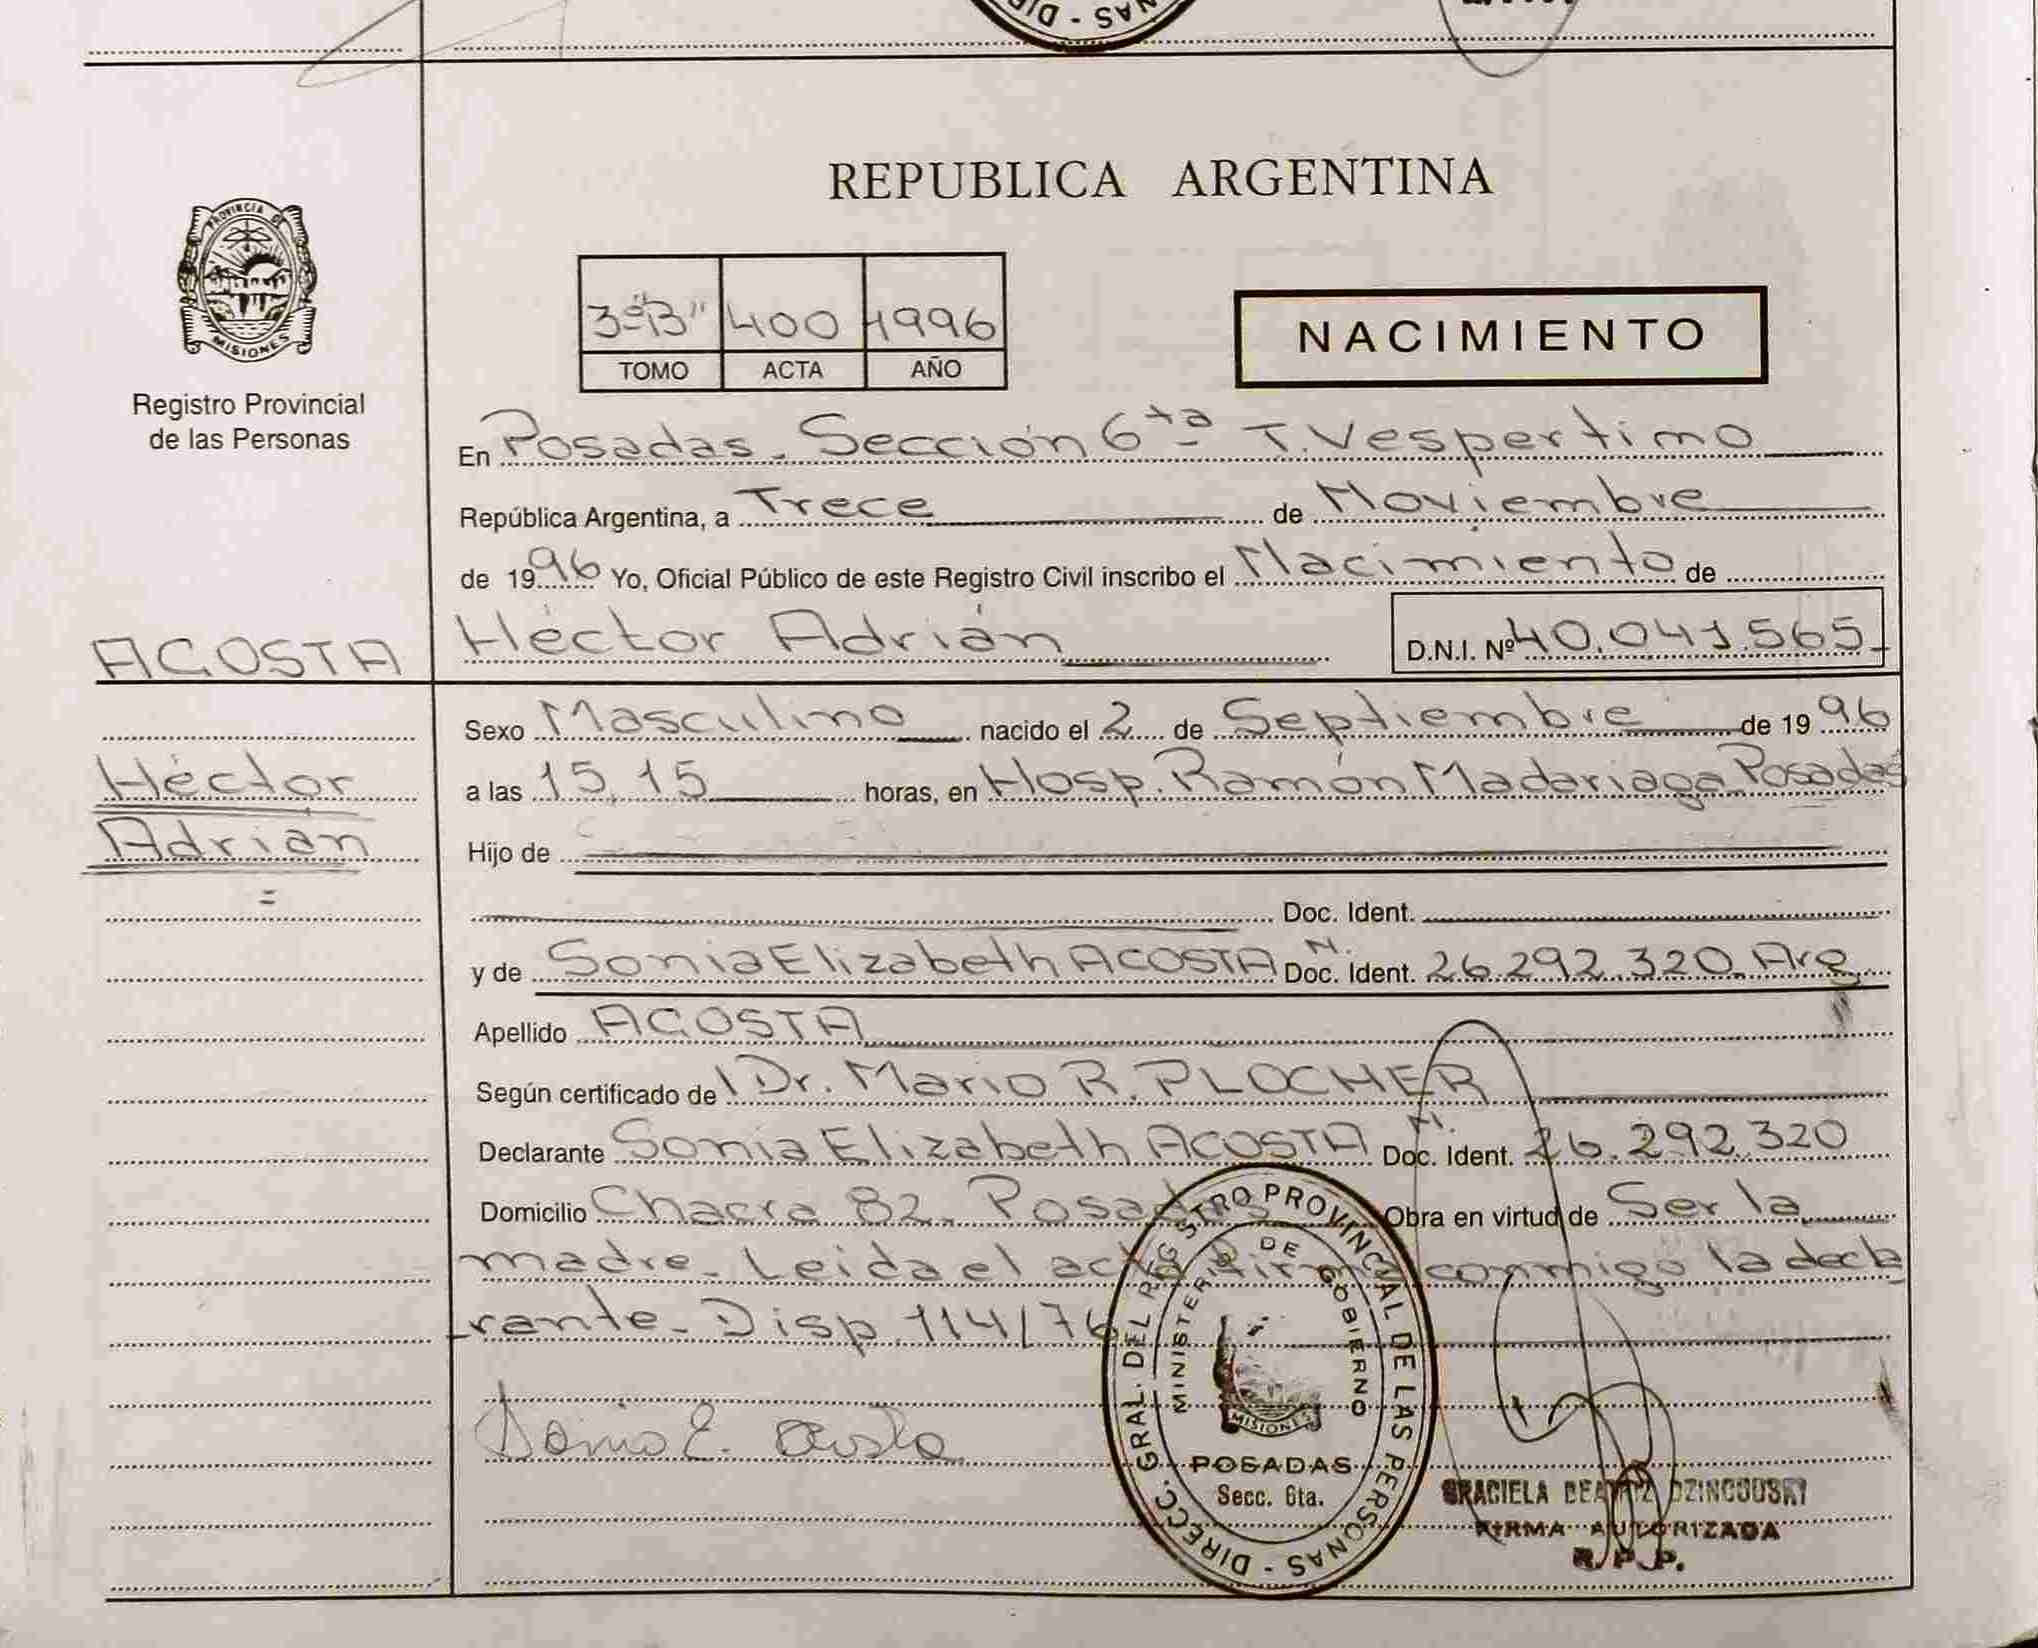 DIR - SAN
REPUBLICA ARGENTINA
PROVINCIA DE
MISIONES
Registro Provincial
de las Personas
3º"B" 400 1996
TOMO ACTA AÑO
NACIMIENTO
En Posadas. Sección 6ta T. Vespertino
República Argentina, a Trece de Noviembre
de 1996 Yo, Oficial Público de este Registro Civil inscribo el Nacimiento de
ACOSTA
Héctor Adrián
D.N.I. Nº 40.041.565
Sexo Masculino nacido el 2 de Septiembre de 1996
Héctor
Adrián
a las 15,15 horas, en Hosp. Ramón Madariaga Posadas
Hijo de
Doc. Ident.
y de Sonia Elizabeth ACOSTA Doc. N. Ident. 26.292.320. Arg
Apellido ACOSTA
Según certificado de Dr. Mario R. PLOCHER
Declarante Sonia Elizabeth ACOSTA Doc. N. Ident. 26.292.320
Domicilio Chacra 82. Posadas Obra en virtud de Ser la
madre- Leida el acta firma conmigo la decla
rante- Disp. 114/76
Sonia E. Acosta
DIRECC. GRAL. DEL REGISTRO PROVINCIAL DE LAS PERSONAS -
MINISTERIO DE GOBIERNO
MISIONES
POSADAS
Secc. 6ta.
GRACIELA BEATRIZ
FIRMA AUTORIZADA
R.P.P.